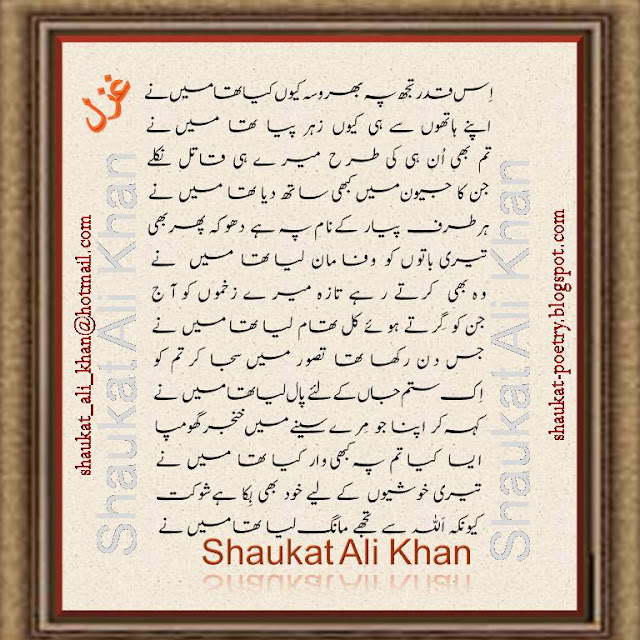 غزل
اِس قدر تجھ پہ بھروسہ کیوں کیا تھا میں نے
اپنے ہاتھوں سے ہی کیوں زہر پیا تھا میں نے
تم بھی اُن ہی کی طرح میرے ہی قاتل نکلے
جن کا جیون میں کبھی ساتھ دیا تھا میں نے
ہر طرف پیار کے نام پہ ہے دھوکہ پھر بھی
تیری باتوں کو وفا مان لیا تھا میں نے
وہ بھی کرتے رہے تازہ میرے زخموں کو آج
جن کو گِرتے ہوئے کل تھام لیا تھا میں نے
جس دن رکھا تھا تصور میں سجا کر تم کو
اِک ستم جاں کے لئے پال لیا تھا میں نے
کہہ کر اپنا جو مِرے سینے میں خنجر گھومپا
ایسا کیا تم پہ کبھی وار کیا تھا میں نے
تیری خوشیوں کے لیے خود بھی بِکا ہے شوکت
کیونکہ اَللہ سے تجھے مانگ لیا تھا میں نے
Shaukat Ali Khan
shaukat_ali_khan@hotmail.com
shaukat-poetry.blogspot.com
Shaukat Ali Khan
Shaukat Ali Khan